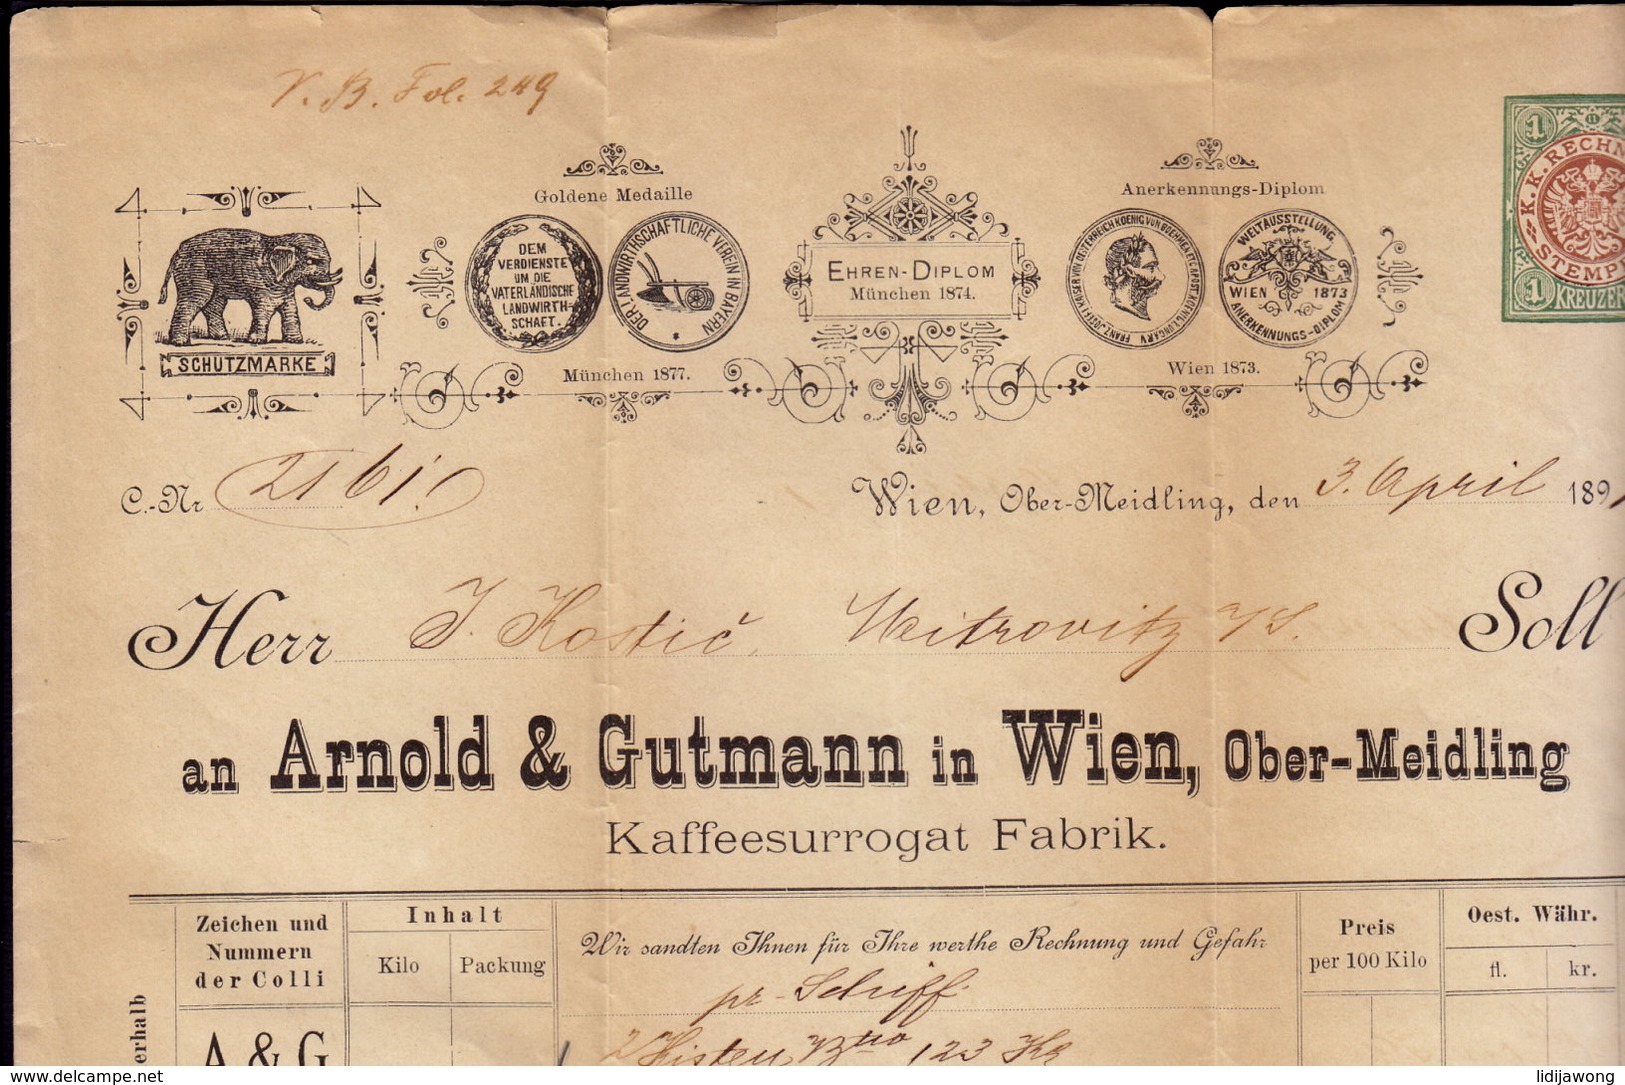 V. B. Fol. 249
Goldene Medaille
DEM VERDIENSTE UM DIE VATERLÄNDISCHE LANDWIRTH-SCHAFT.
DER LANDWIRTHSCHAFTLICHE VEREIN IN BAYERN
München 1877.
SCHUTZMARKE
EHREN-DIPLOM
München 1874.
Anerkennungs-Diplom
FRANZ JOSEPH I KAISER VON OESTERREICH KOENIG VON BOEHMEN ETC. APOST. KOENIG V. UNGARN
WELTAUSSTELLUNG.
WIEN 1873
ANERKENNUNGS-DIPLOM
Wien 1873.
1 1
K. K. RECHN
STEMP
1 KREUZER
C.-Nr 2161.
Wien, Ober-Meidling, den 3. April 189
Herr J. Kostić, Mitrovitz a/S. Soll
an Arnold & Gutmann in Wien, Ober-Meidling
Kaffeesurrogat Fabrik.
Zeichen und Nummern der Colli
Inhalt
Kilo Packung
Wir sandten Ihnen für Ihre werthe Rechnung und Gefahr
Preis per 100 Kilo
Oest. Währ.
fl. kr.
pr Schiff
erhalb
A & G
2 Kisten Btto 123 Kg
delcampe.net
lidijawong